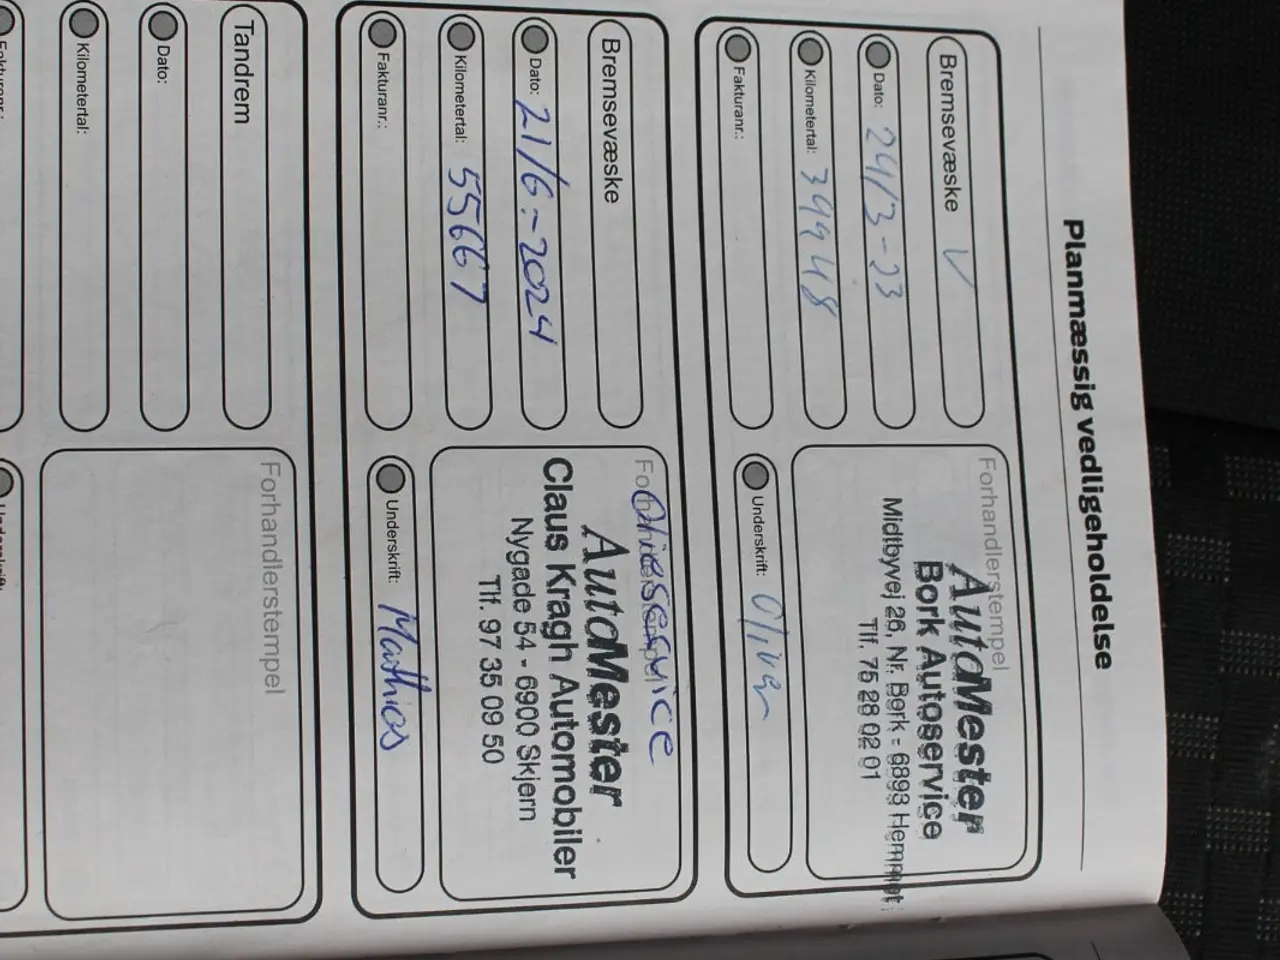 Planmæssig vedligeholdelse
Bremsevæske V
Dato: 24/3-23
Kilometertal: 39948
Fakturanr.:
Forhandlerstempel
AutoMester
Bork Autoservice
Midtbyvej 26, Nr. Bork - 6893 Hemmet
Tlf. 75 28 02 01
Underskrift: Oliver
Bremsevæske
Dato: 21/6-2024
Kilometertal: 55667
Fakturanr.:
Olieservice
AutoMester
Claus Kragh Automobiler
Nygade 54 - 6900 Skjern
Tlf. 97 35 09 50
Underskrift: Mathias
Tandrem
Dato:
Kilometertal:
Fakturanr.:
Forhandlerstempel
Underskrift: